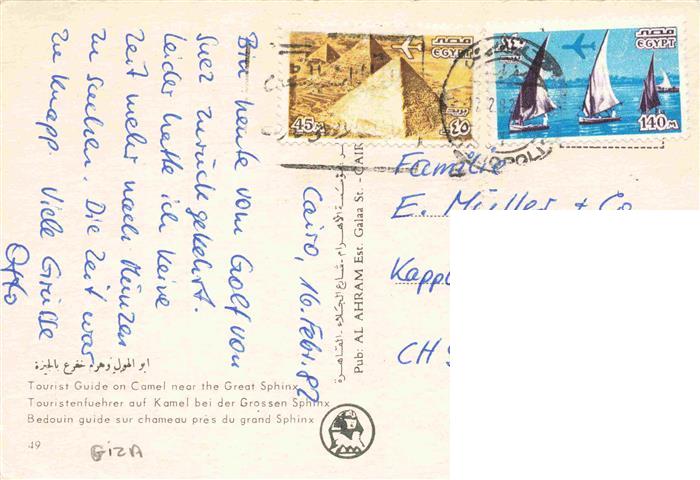 Cairo, 16. Febr. 82
Bin heute vom Golf von
Suez zurück gekehrt.
Leider hatte ich keine
Zeit mehr nach Münzen
zu suchen. Die Zeit war
zu knapp. Viele Grüsse
Otto
مصر
EGYPT
45M
٤٥
مصر
EGYPT
140M
Familie
E. Müller + Co
CH
Pub: AL AHRAM Est. Galaa St. - CAIR
مؤسسة الأهرام - شارع الجلاء - القاهرة
ابو الهول وهرم خفرع بالجيزة
Tourist Guide on Camel near the Great Sphinx
Touristenfuehrer auf Kamel bei der Grossen Sphinx
Bedouin guide sur chameau près du grand Sphinx
49
GIZA